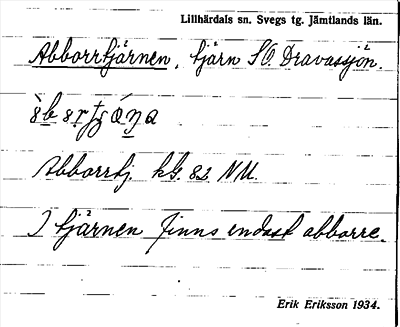 Lillhärdals sn. Svegs tg. Jämtlands län.
Abborrtjärnen, tjärn SO. Dravassjön.
Abborrtj. kbl. 83 NU.
I tjärnen finns endast abborre.
Erik Eriksson 1934.